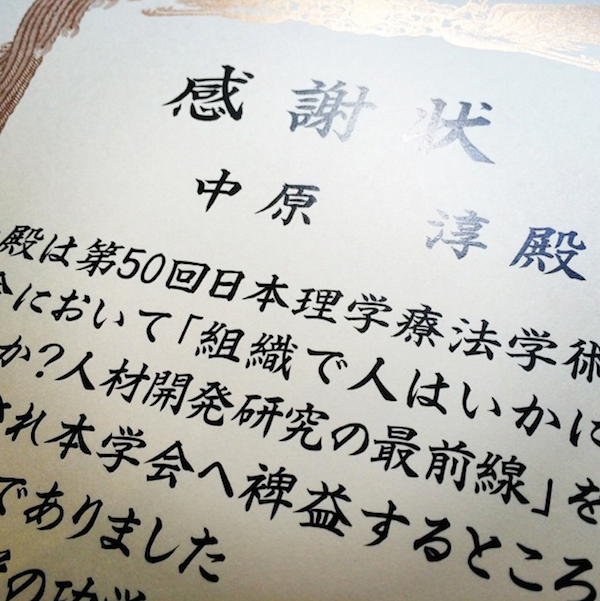 感謝状
中原 淳殿
殿は第50回日本理学療法学術
会において「組織で人はいかに
か?人材開発研究の最前線」を
され本学会へ裨益するところ
でありました
の功労